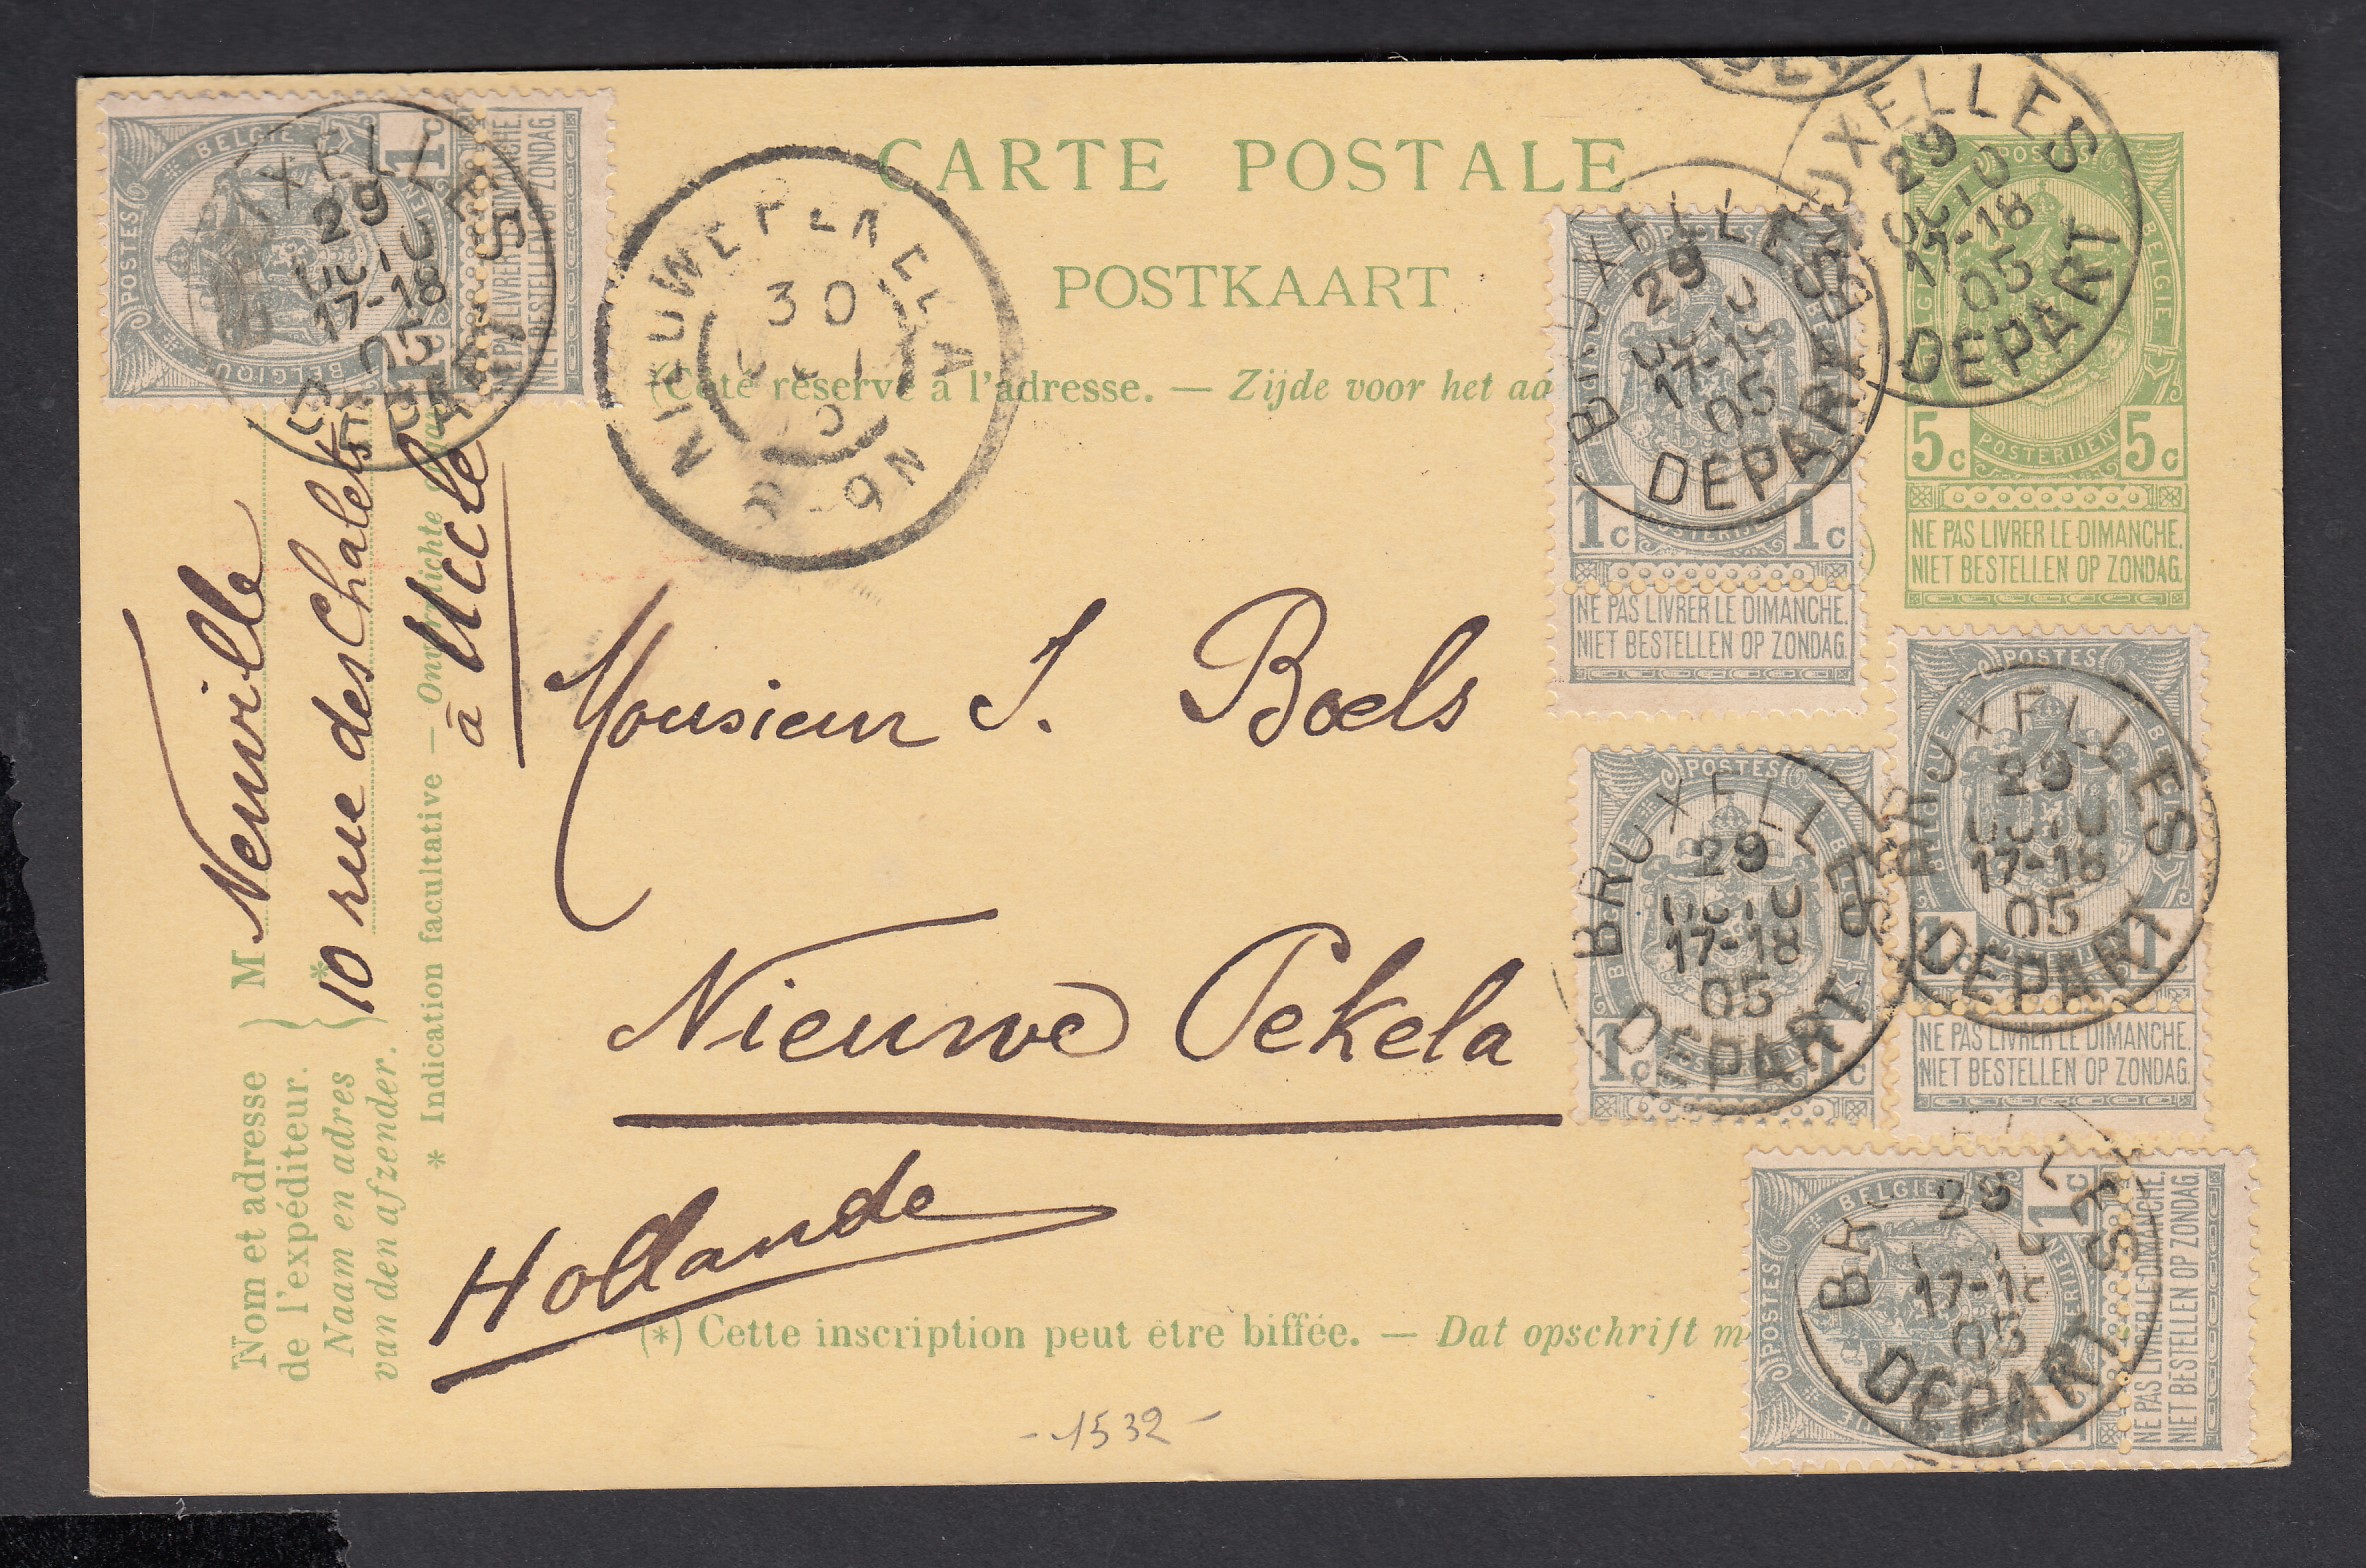 CARTE POSTALE
POSTKAART
(Côté réservé à l'adresse. — Zijde voor het
Monsieur J. Boels
Nieuwe Pekela
Hollande
(*) Cette inscription peut être biffée. — Dat opschrift
-1532-
Nom et adresse
de l'expéditeur.
Naam en adres
van den afzender.
M Neuville
10 rue des Chalets
à Uccle
* Indication facultative —
BELGIE
POSTES
BELGIQUE
1c
NE PAS LIVRER LE DIMANCHE.
NIET BESTELLEN OP ZONDAG.
BRUXELLES
29
OCTO
17-18
05
DEPART
NIEUWE PEKELA
30
POSTES
BELGIE
1c 1c
NE PAS LIVRER LE DIMANCHE.
NIET BESTELLEN OP ZONDAG.
BRUXELLES
29
OCTO
17-18
05
DEPART
BRUXELLES
29
OCTO
17-18
05
DEPART
POSTES
BELGIE
5c POSTERIJEN 5c
NE PAS LIVRER LE DIMANCHE.
NIET BESTELLEN OP ZONDAG.
POSTES
1c 1c
BRUXELLES
29
OCTO
17-18
05
DEPART
POSTES
BELGIQUE
BELGIE
POSTERIJEN
1 1
NE PAS LIVRER LE DIMANCHE.
NIET BESTELLEN OP ZONDAG.
BRUXELLES
29
OCTO
17-18
05
DEPART
POSTES
BELGIE
1c
NE PAS LIVRER LE DIMANCHE.
NIET BESTELLEN OP ZONDAG.
29
05
DEPART